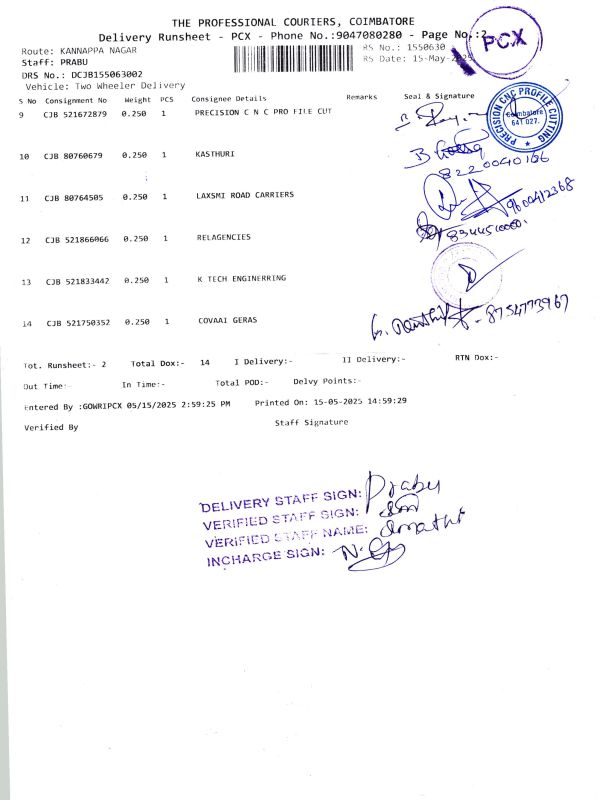 THE PROFESSIONAL COURIERS, COIMBATORE
Delivery Runsheet - PCX - Phone No.:9047080280 - Page No.:2
PCX
Route: KANNAPPA NAGAR
RS No.: 1550630
Staff: PRABU
RS Date: 15-May-2025
DRS No.: DCJB155063002
Vehicle: Two Wheeler Delivery
S No Consignment No Weight PCS Consignee Details Remarks Seal & Signature
9 CJB 521672879 0.250 1 PRECISION C N C PRO FILE CUT
PRECISION CNC PROFILE CUTTING
Coimbatore
641 027.
10 CJB 80760679 0.250 1 KASTHURI
8220040166
11 CJB 80764505 0.250 1 LAXSMI ROAD CARRIERS
9600412368
12 CJB 521866066 0.250 1 RELAGENCIES
13 CJB 521833442 0.250 1 K TECH ENGINERRING
14 CJB 521750352 0.250 1 COVAAI GERAS
8754773967
Tot. Runsheet:- 2 Total Dox:- 14 I Delivery:- II Delivery:- RTN Dox:-
Out Time:- In Time:- Total POD:- Delvy Points:-
Entered By :GOWRIPCX 05/15/2025 2:59:25 PM Printed On: 15-05-2025 14:59:29
Verified By Staff Signature
DELIVERY STAFF SIGN: Prabu
VERIFIED STAFF SIGN:
VERIFIED STAFF NAME:
INCHARGE SIGN: